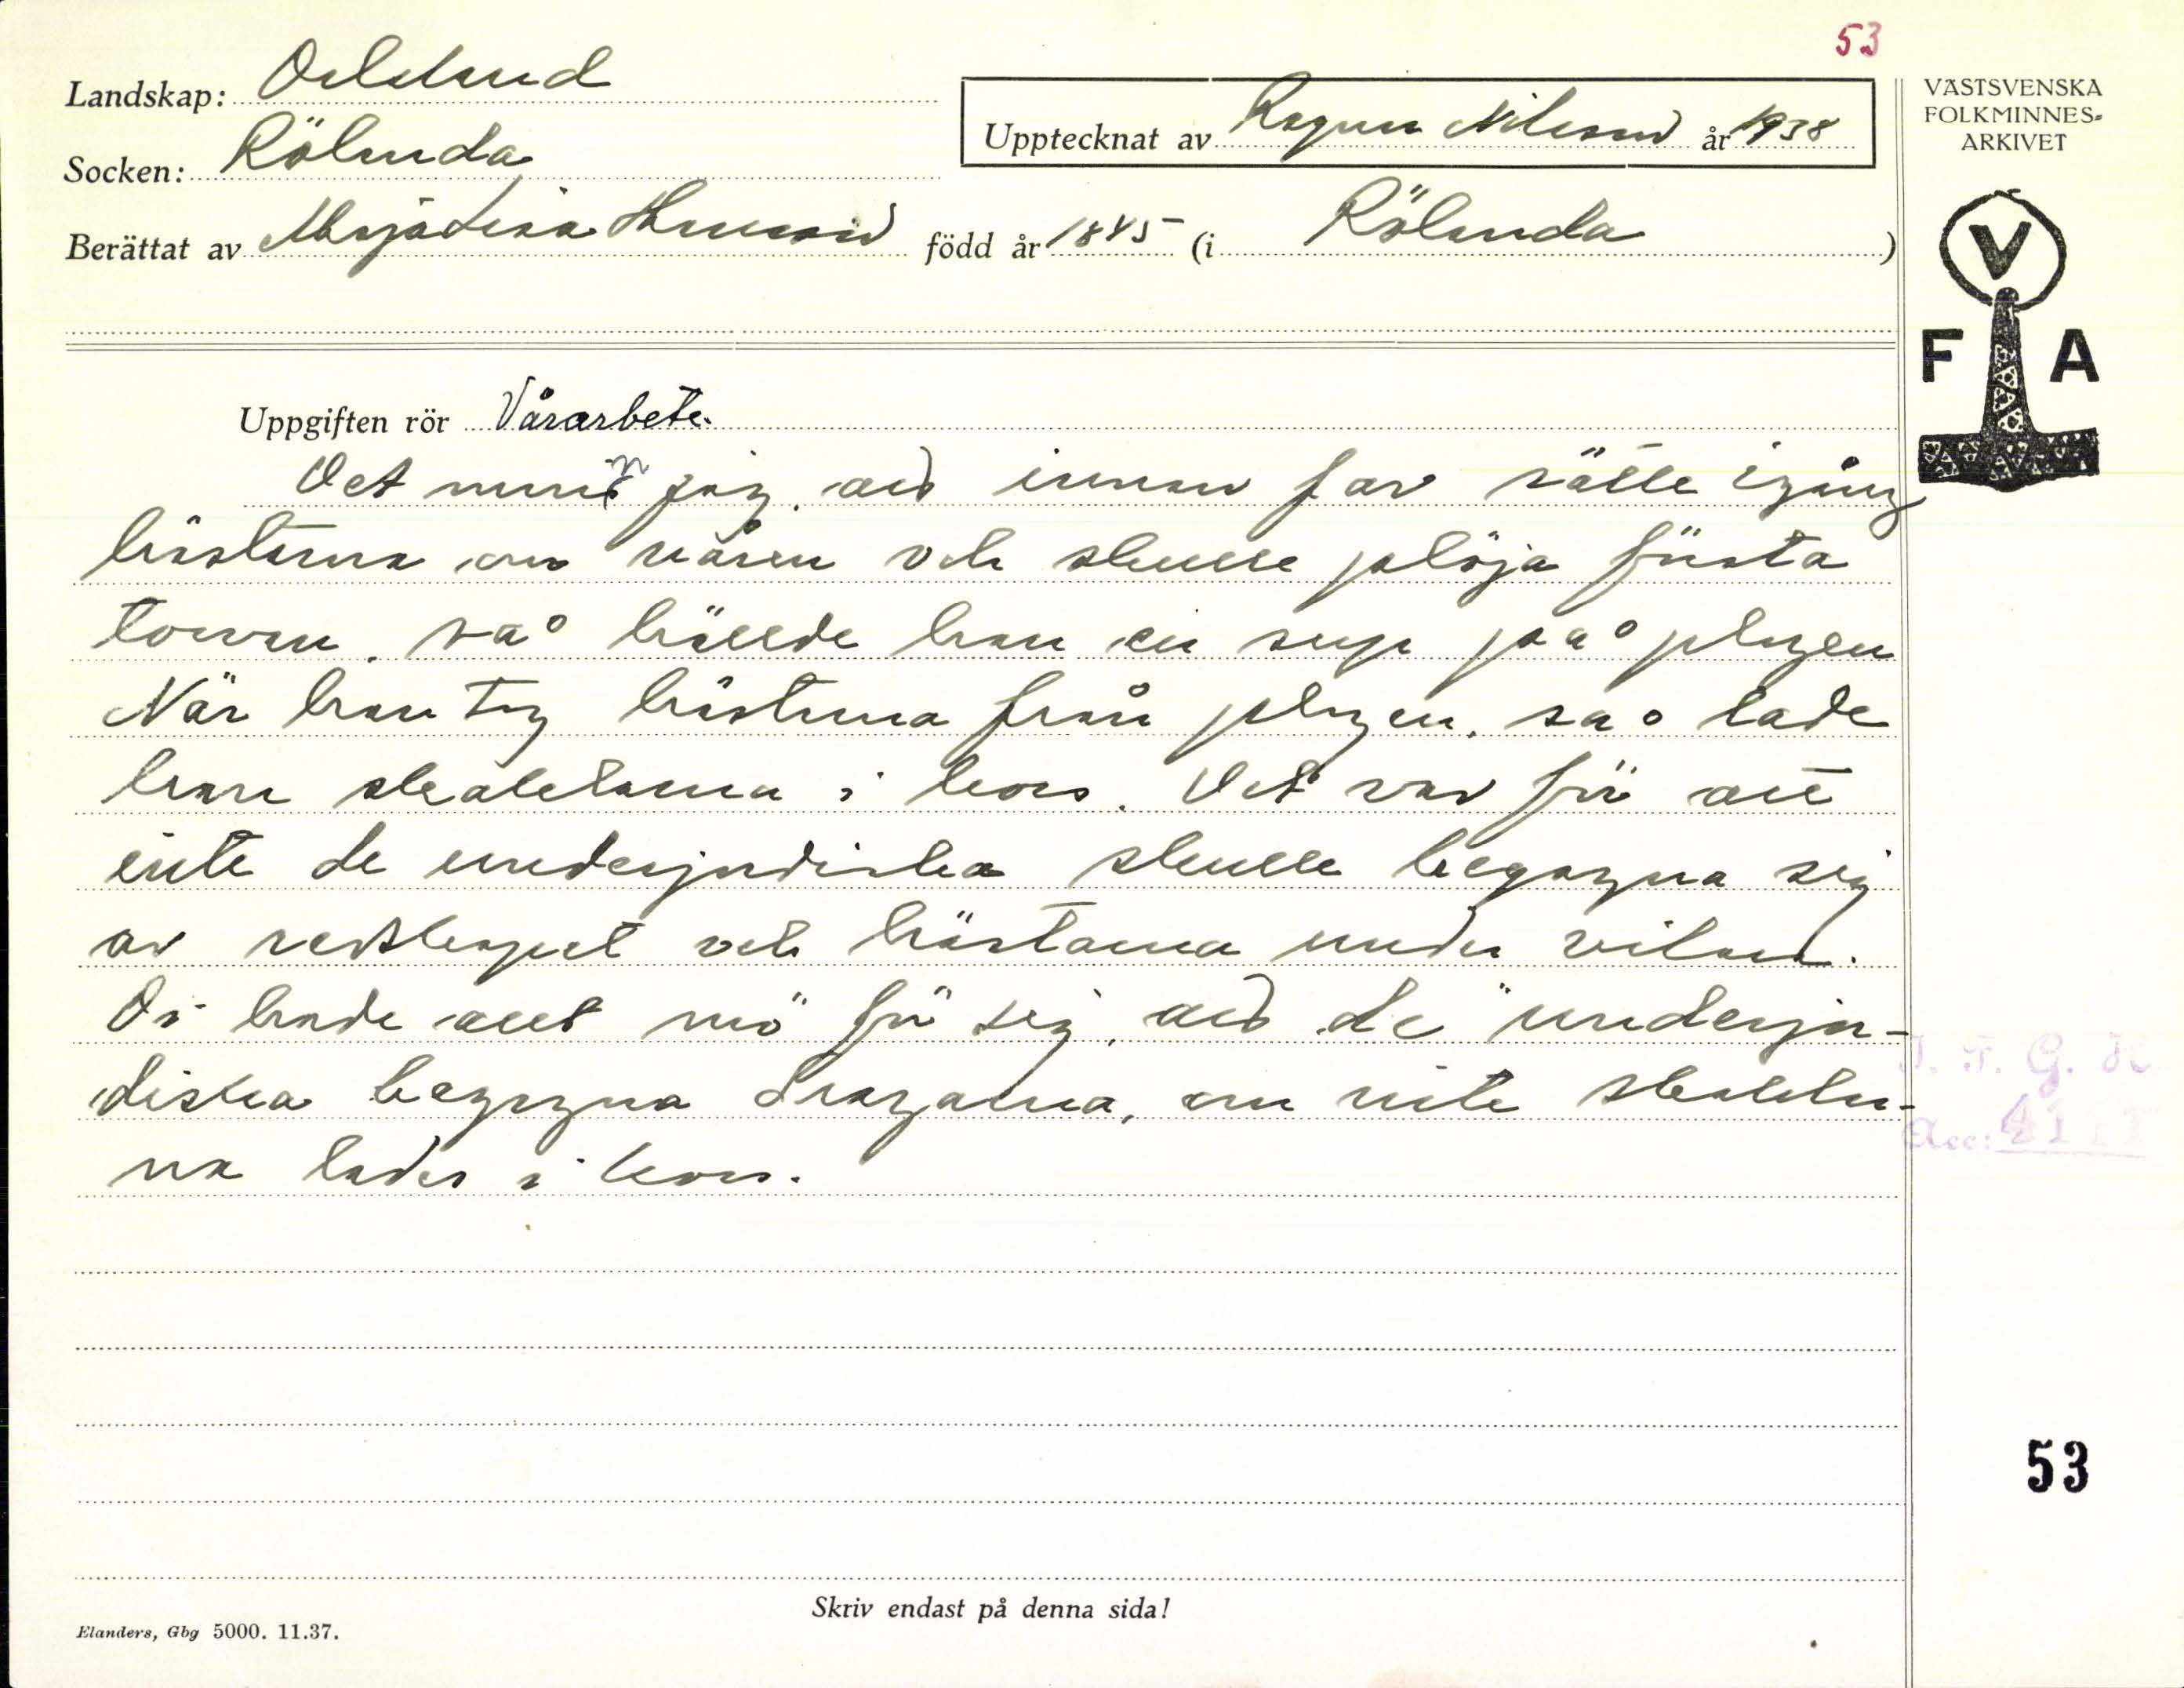 53
Landskap: Dalsland
Socken: Rölanda
Upptecknat av Ragnar Nilsson år 1938
Berättat av Maja Lisa född år 1845 (i Rölanda)
VÄSTSVENSKA
FOLKMINNES-
ARKIVET
V
F A
Uppgiften rör Vårarbete.
Det minns jag, att innan far sätte igång
hästarna om våren och skulle plöja första
torvan, så hällde han en sup på plogen
När han tog hästarna från plogen, så lade
han skaklarna i kors. Det var för att
inte de underjordiska skulle begagna sig
av redskapet och hästarna under vilan.
Di hade allt mö för sig, att de underjor-
diska begagna dragarna, om inte skakla-
na lades i kors.
J. F. G. K
Acc: 41
53
Skriv endast på denna sida!
Elanders, Gbg 5000. 11.37.